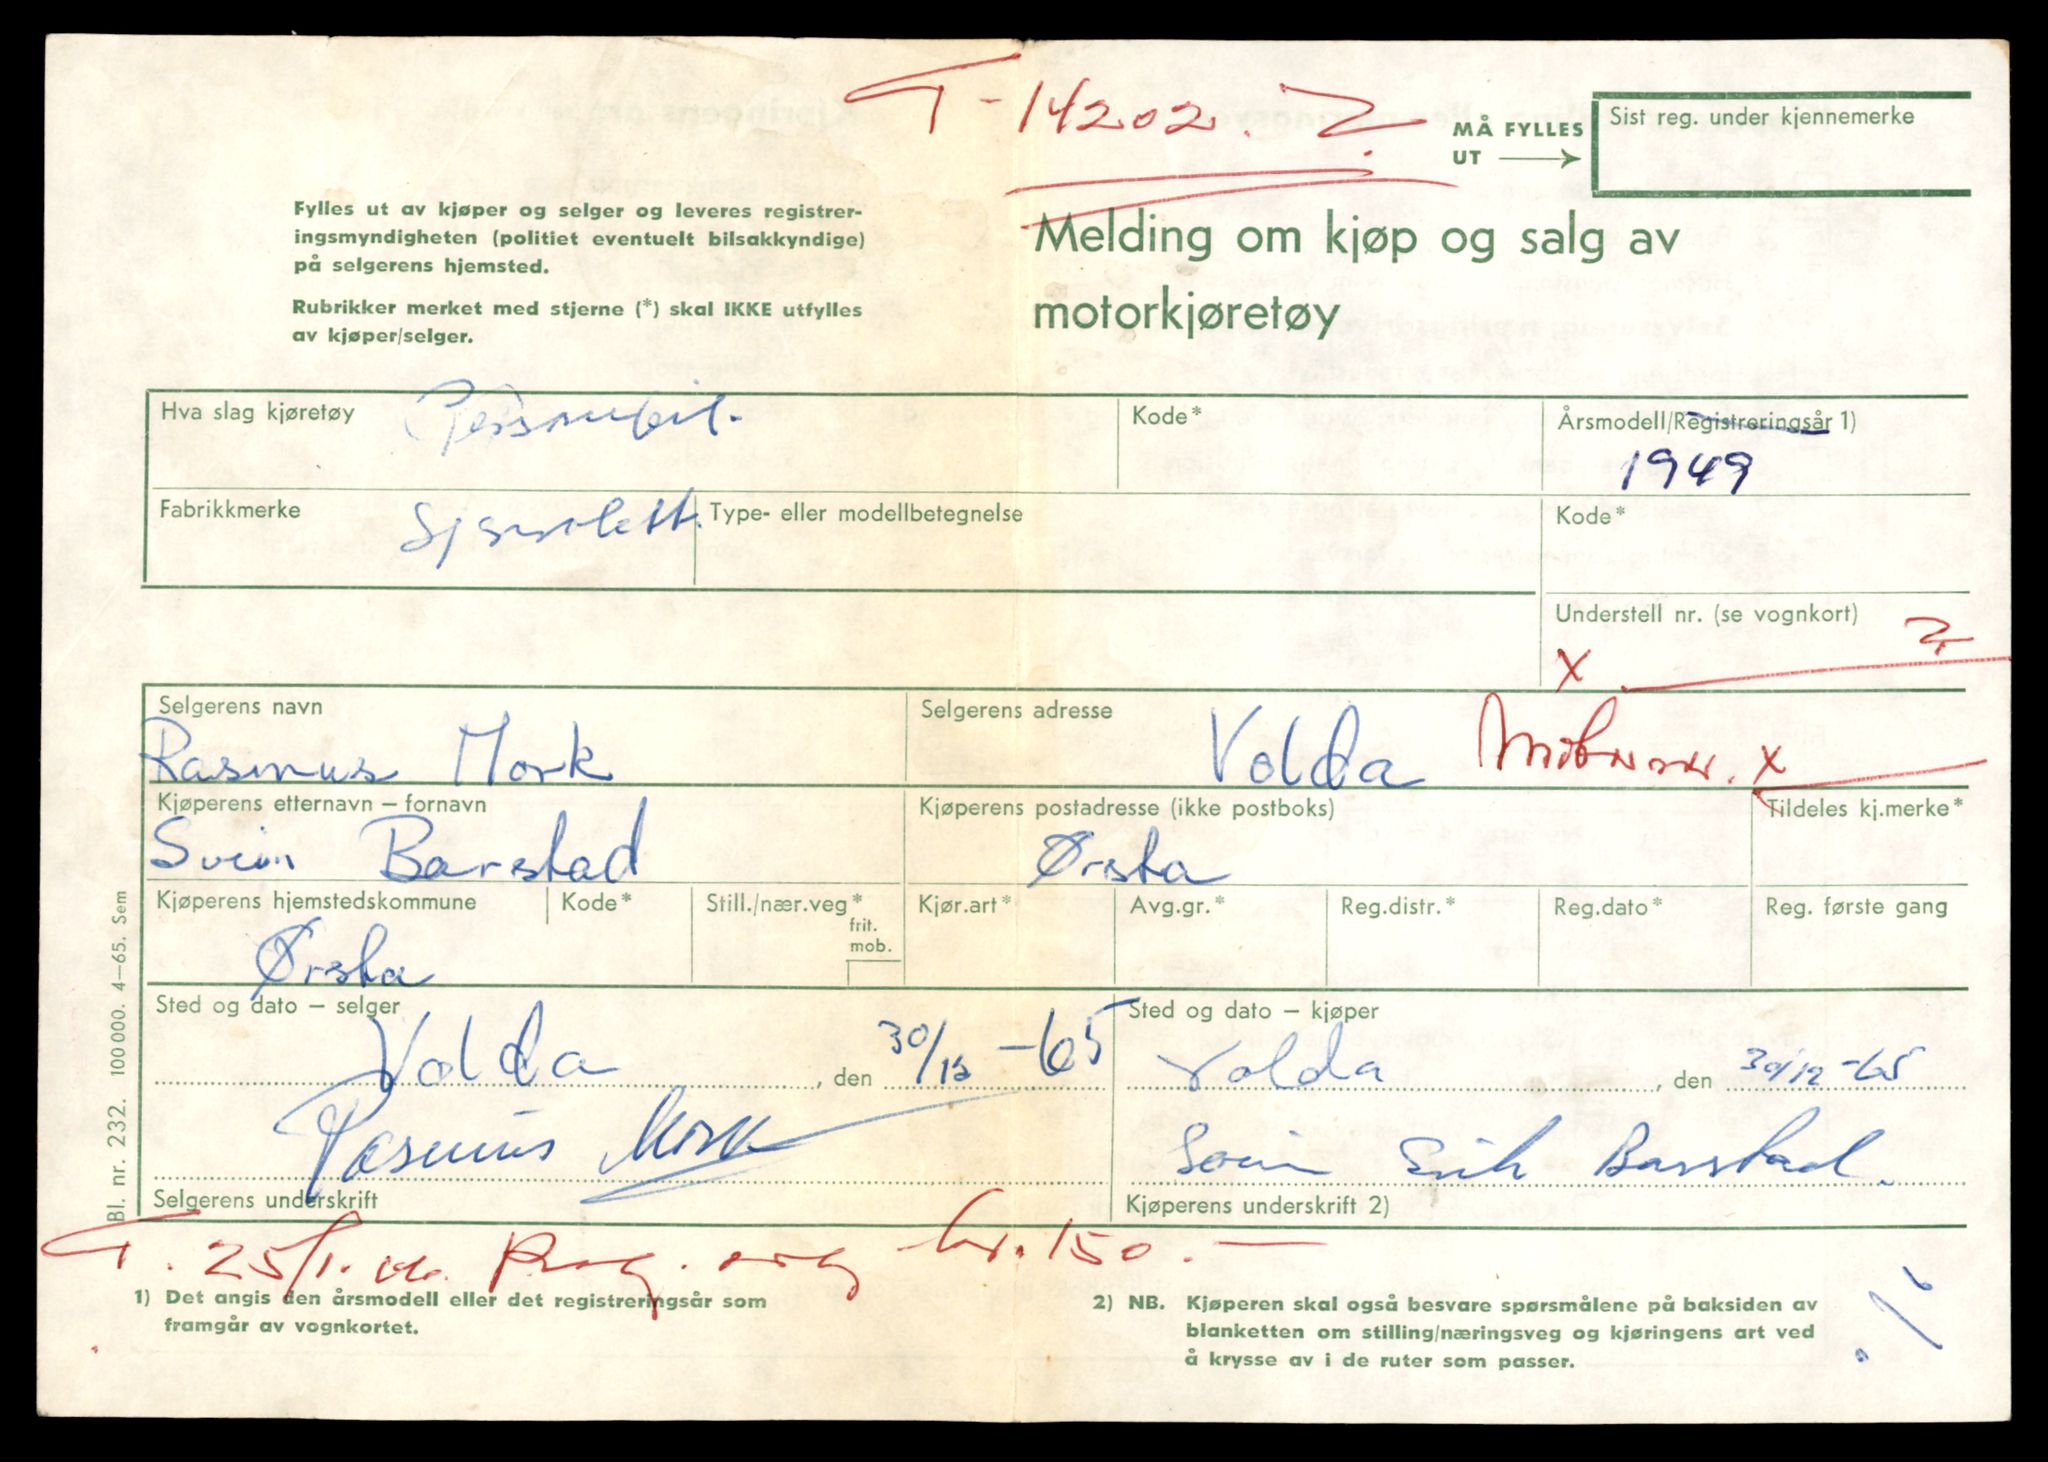 T-14202.
MÅ FYLLES
UT
Sist reg. under kjennemerke
Fylles ut av kjøper og selger og leveres registrer-
ingsmyndigheten (politiet eventuelt bilsakkyndige)
på selgerens hjemsted.
Rubrikker merket med stjerne (*) skal IKKE utfylles
av kjøper/selger.
Melding om kjøp og salg av
motorkjøretøy
Hva slag kjøretøy Personbil.
Kode*
Årsmodell/Registreringsår 1)
1949
Fabrikkmerke Sjevrolett.
Type- eller modellbetegnelse
Kode*
Understell nr. (se vognkort)
x
Selgerens navn
Rasmus Mork
Selgerens adresse
Volda x
Kjøperens etternavn – fornavn
Svein Barstad
Kjøperens postadresse (ikke postboks)
Ørsta
Tildeles kj.merke*
Kjøperens hjemstedskommune
Ørsta
Kode*
Still./nær.veg*
frit.
mob.
Kjør.art*
Avg.gr.*
Reg.distr.*
Reg.dato*
Reg. første gang
Sted og dato – selger
Volda , den 30/12 -65
Rasmus Mork
Selgerens underskrift
Sted og dato – kjøper
Volda , den 30/12-65
Svein Erik Barstad.
Kjøperens underskrift 2)
T. 25/1. kr. 150.-
1) Det angis den årsmodell eller det registreringsår som
framgår av vognkortet.
2) NB. Kjøperen skal også besvare spørsmålene på baksiden av
blanketten om stilling/næringsveg og kjøringens art ved
å krysse av i de ruter som passer.
Bl. nr. 232. 100 000. 4–65. Sem